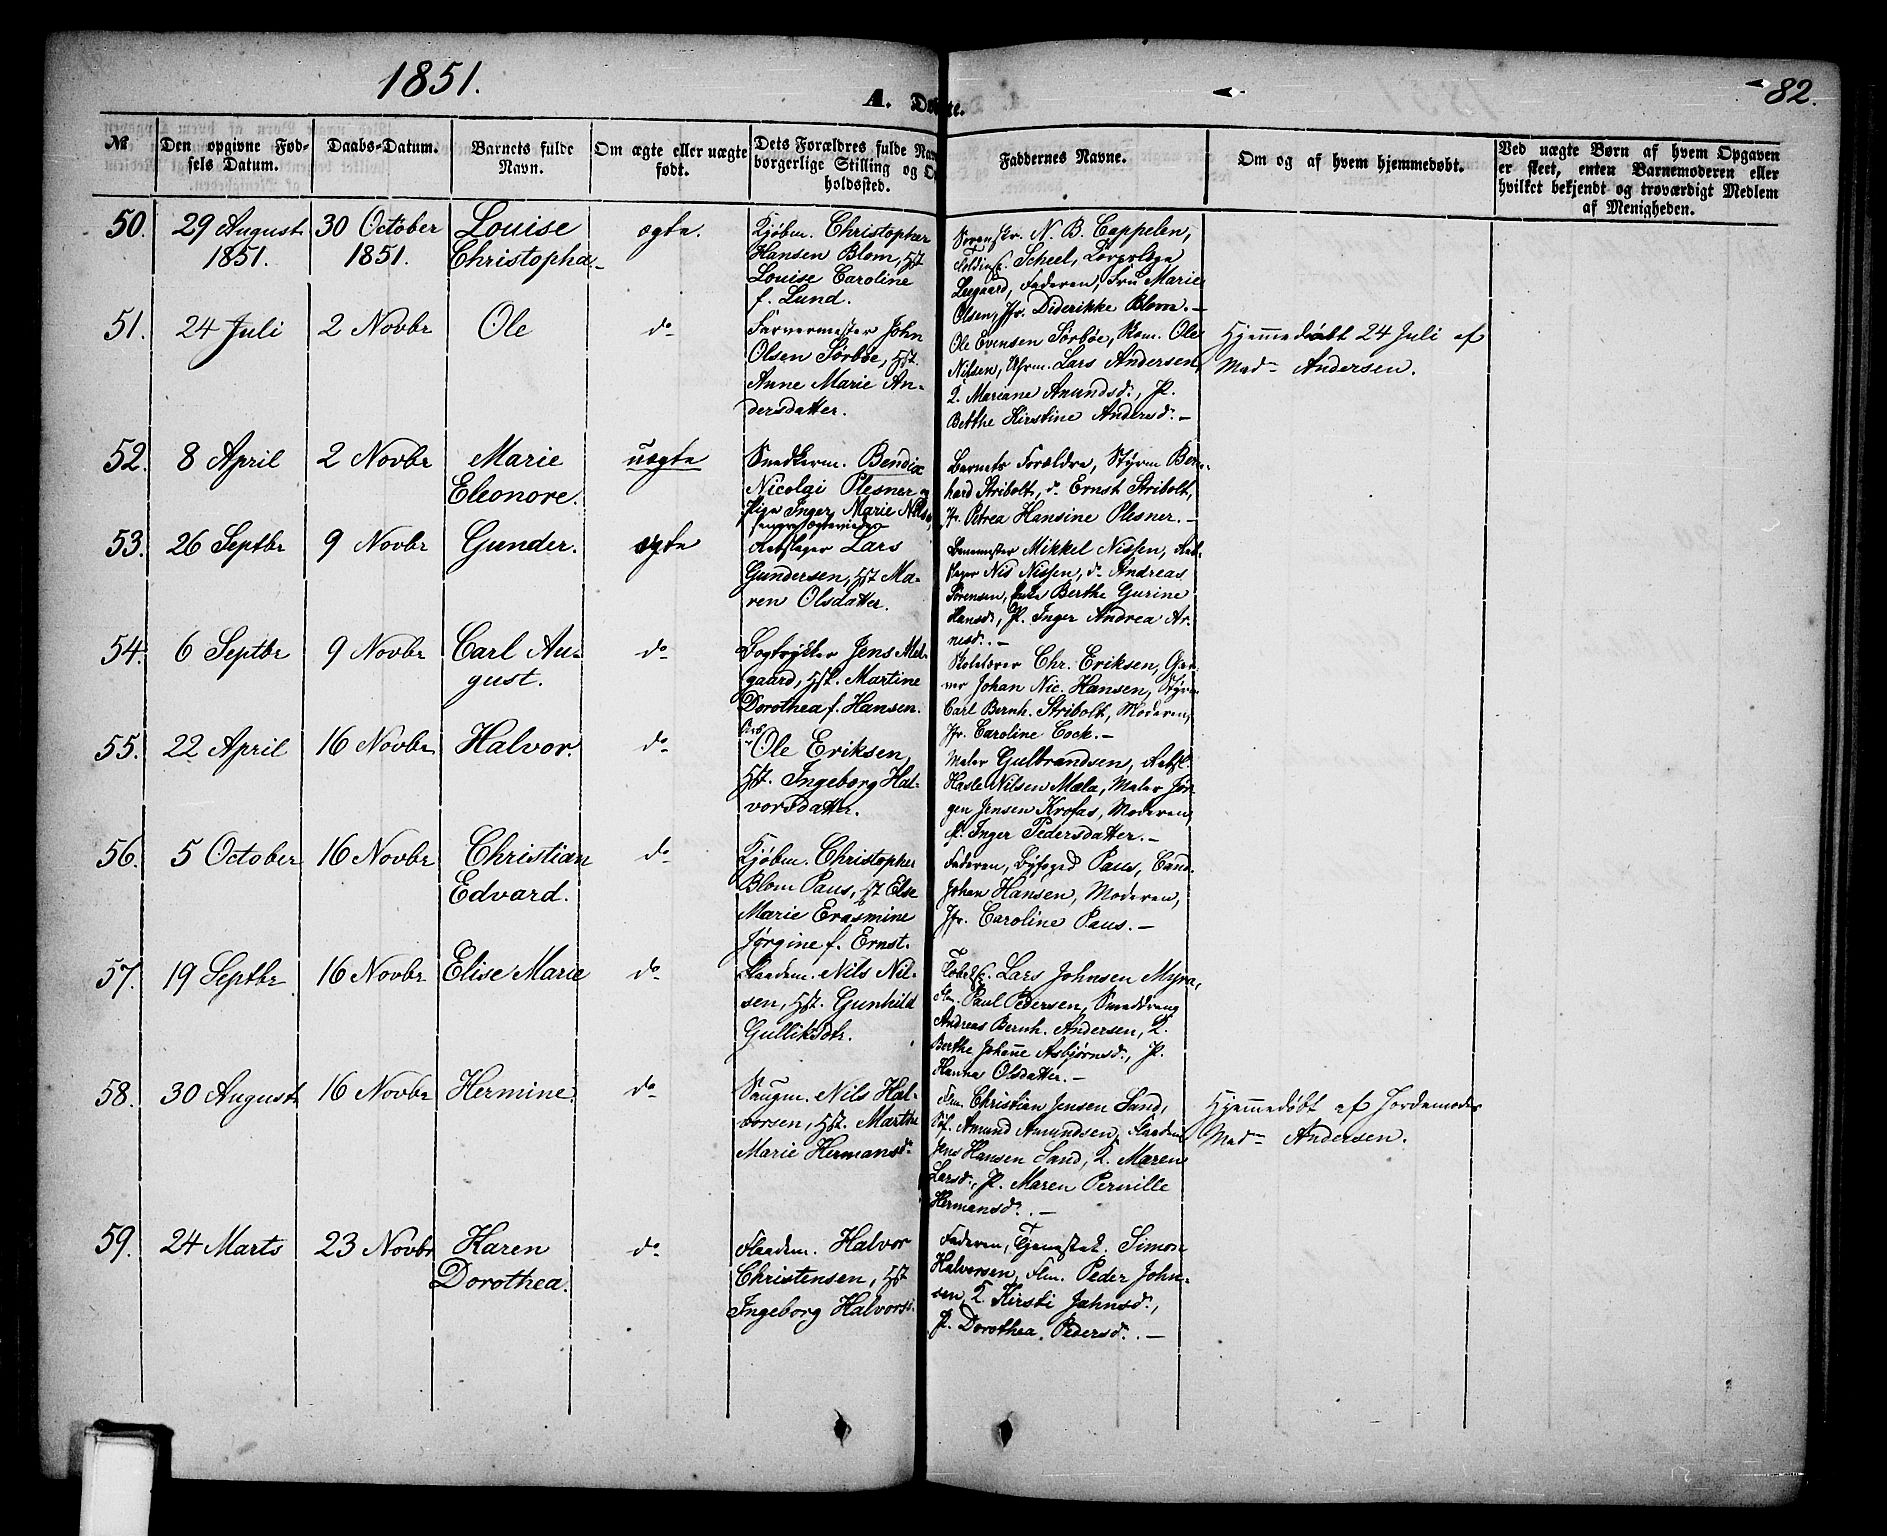 1851.
A. Døbte.
82.
No
Den opgivne Fød-
sels Datum.
Daabs-Datum.
Barnets fulde
Navn.
Om ægte eller uægte
født.
Dets Forældres fulde Nav
borgerlige Stilling og O
holdssted.
Faddernes Navne.
Om og af hvem hjemmedøbt.
Ved uægte Børn af hvem Opgaven
er skeet, enten Barnemoderen eller
hvilket bekjendt og troværdigt Medlem
af Menigheden.
50.
29 August
1851.
30 October
1851.
Louise
Christopha
ægte.
Kjøbm. Christopher
Hansen Blom, Hst
Louise Caroline
f. Lund.
N. B. Cappelen,
Scheel,
Faderen, Fru Marie
Olsen, Jfr. Diderikke Blom.-
51.
24 Juli
2 Novbr
Ole
do
Farvermester John
Olsen Sørbøe, Hst.
Anne Marie An-
dersdatter.
Ole Evensen Sørbøe, Ole
Nilsen, Lars Andersen,
Q. Mariane Amundsd., P.
Berthe Kirstine Andersd.-
Hjemmedøbt 24 Juli af
Mad- Andersen.
52.
8 April
2 Novbr
Marie
Eleonore.
uægte
Snedkerm. Bendix
Nicolai Plesner og
Pige Inger Marie Nils
Barnets Forældre, Styrm Bern-
hard Stribolt, do Ernst Stribolt,
Jfr. Petrea Hansine Plesner.-
53.
26 Septbr
9 Novbr
Gunder.
ægte
Rebslager Lars
Gundersen, Hst. Ma-
ren Olsdatter.
Mikkel Nissen, Reb-
slager Nis Nissen, do Andreas
Sørensen, Berthe Gurine
Hansd., P. Inger Andrea Ar-
nesd..-
54.
6 Septbr
9 Novbr
Carl Au-
gust.
do
Bogtrykker Jens Mel-
gaard, Hst. Martine
Dorothea f. Hansen.
Skolelærer Chr. Eriksen,
Johan Nic. Hansen, Styrm
Carl Bernh. Stribolt, Moderen,
Jfr. Caroline Cock.-
55.
22 April
16 Novbr
Halvor.
do
Ole Eriksen,
Hst. Ingeborg Hal-
vorsdatter.
Maler Gulbrandsen, Rebsl.
Hasle Nilsen Mæla, Maler Jør-
gen Jensen Krofas, Moderen,
P. Inger Pedersdatter.-
56.
5 October
16 Novbr
Christian
Edvard.
do
Kjøbm. Christopher
Blom Paus, Hst Else
Marie Erasmine
Jørgine f. Ernst.
Faderen, Byfoged Paus, Cand.
Johan Hansen, Moderen,
Jfr. Caroline Paus.-
57.
19 Septbr
16 Novbr
Elise Marie
do
Flaadm. Nils Nil-
sen, Hst. Gunhild
Gulliksdtr.
Lars Johnsen Myra,
Flm. Paul Pedersen, Smeddreng
Andreas Bernh. Andersen, Q.
Berthe Johanne Asbjørnsd., P.
Hanna Olsdatter.-
58.
30 August
16 Novbr
Hermine.
do
Saugm. Nils Hal-
vorsen, Hst. Marthe
Marie Hermansd.
Flm. Christian Jensen Sand,
Amund Amundsen, Flaadm
Jens Hansen Sand, Q. Maren
Larsd., P. Maren Pernille
Hermansd..-
Hjemmedøbt af Jordemoder
Mad- Andersen.
59.
24 Marts
23 Novbr
Karen
Dorothea.
do
Flaadm. Halvor
Christensen, Hst
Ingeborg Halvorsd.
Faderen, Tjenestek. Simon
Halvorsen, Flm. Peder John-
sen, Q. Kirsti Jahnsd.,
P. Dorothea Pedersd..-